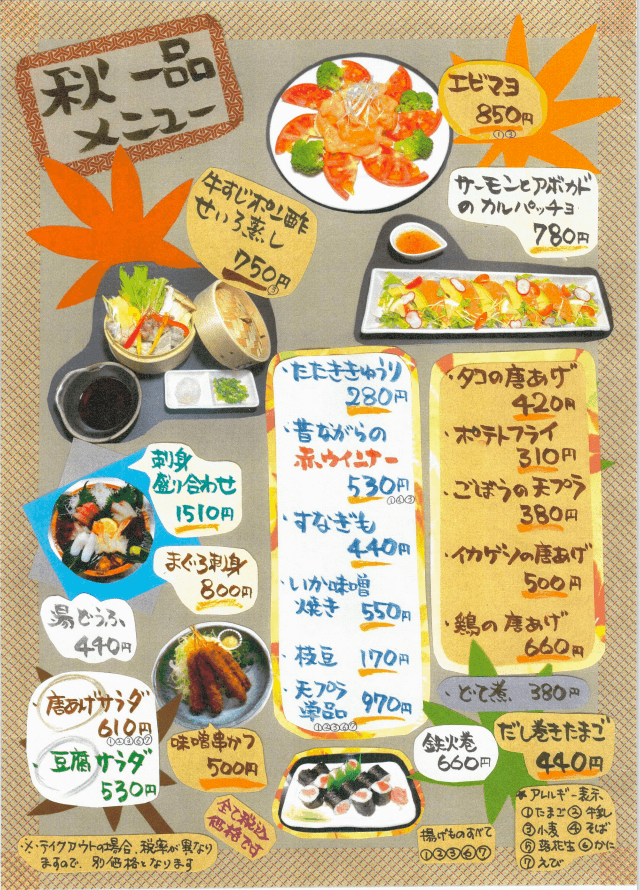 秋 一品
メニュー
エビマヨ
850円
①③
サーモンとアボカド
のカルパッチョ
780円
牛すじポン酢
せいろ蒸し
750円
③
・たたききゅうり
280円
・昔ながらの
赤ウインナー
530円
・すなぎも
440円
・いか味噌
焼き 550円
・枝豆 170円
・天プラ
単品 970円
・タコの唐あげ
420円
・ポテトフライ
310円
・ごぼうの天プラ
380円
・イカゲソの唐あげ
500円
・鶏の唐あげ
660円
・どて煮 380円
刺身
盛り合わせ
1510円
まぐろ刺身
800円
湯どうふ
440円
・唐あげサラダ
610円
・豆腐サラダ
530円
味噌串かつ
500円
鉄火巻
660円
だし巻きたまご
440円
全て税込
価格です
揚げものすべて
①②③⑥⑦
＊アレルギー表示
①たまご ②牛乳
③小麦 ④そば
⑤落花生 ⑥かに
⑦えび
・※・テイクアウトの場合、税率が異なり
ますので、別価格となります